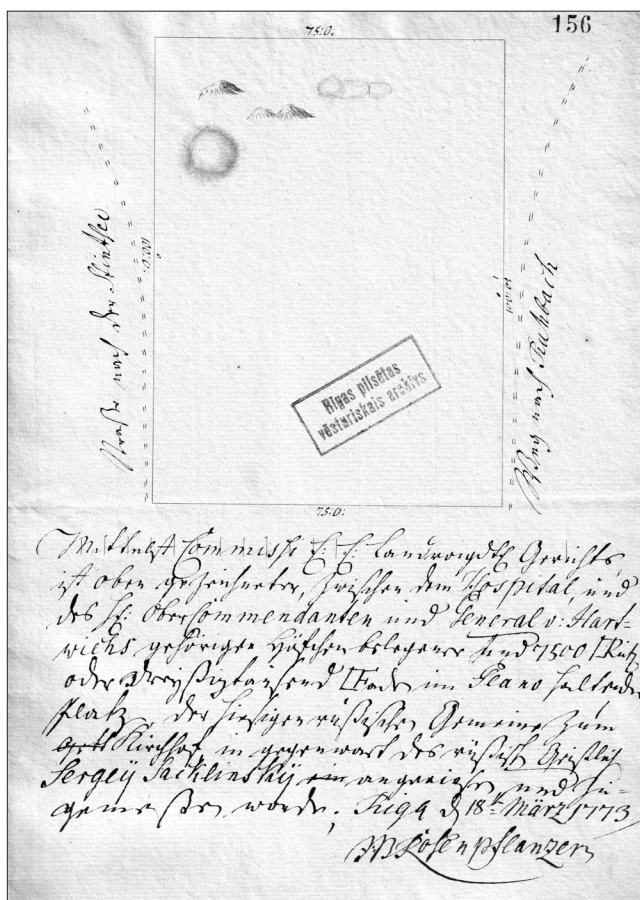 156
75:0.
Straße nach der Stintsee
100:0.
100:0.
Weg nach Ruhbach
Rīgas pilsētas
vēsturiskais archīvs
75:0.
Mittelst Commissi E. E. Landvoigdtl Gerichts
ist oben gezeichneter, zwischen dem Hospital, und
des H: Obercommendanten und General v: Hart-
wichs gehörigen Höfchen belegener und 7500 □ Ruh
oder Dreyßigtausend □ Faden im Plano haltender
Platz, der hiesigen rußischen Gemeine zum
Kirchhof in gegenwart des rußisch Geistlich
Sergey Sacklinsky angewiesen und in-
gemeßen worde. Riga d 18t März 1773
M Rosenpflanzer